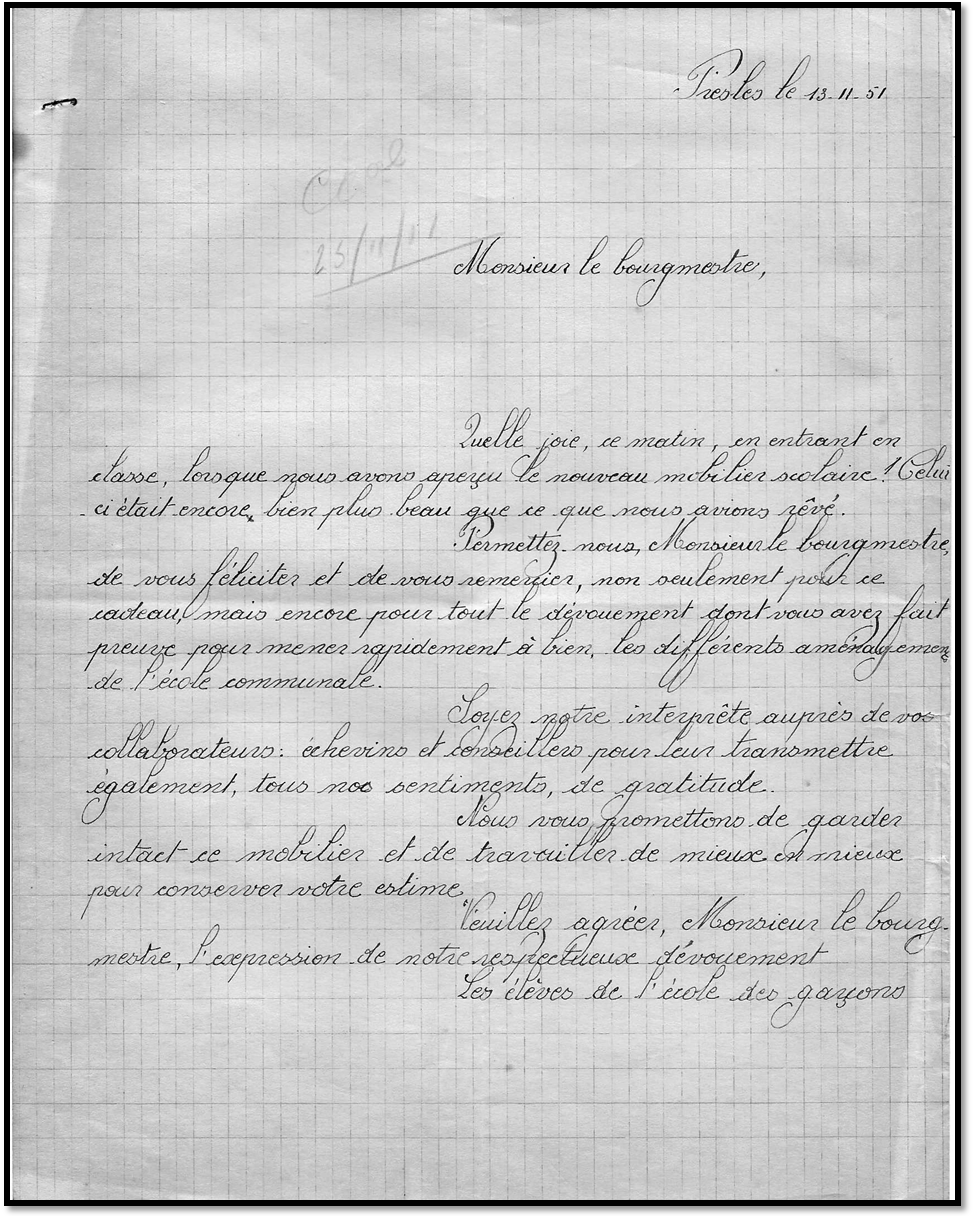 Presles le 13-11-51
25/11/51
Monsieur le bourgmestre,
Quelle joie, ce matin, en entrant en
classe, lorsque nous avons aperçu le nouveau mobilier scolaire! Celui
-ci était encore, bien plus beau que ce que nous avions rêvé.
Permettez-nous, Monsieur le bourgmestre,
de vous féliciter et de vous remercier, non seulement pour ce
cadeau, mais encore pour tout le dévouement dont vous avez fait
preuve pour mener rapidement à bien, les différents aménagements
de l'école communale.
Soyez notre interprête auprès de vos
collaborateurs: échevins et conseillers pour leur transmettre
également, tous nos sentiments, de gratitude.
Nous vous promettons de garder
intact ce mobilier et de travailler de mieux en mieux
pour conserver votre estime.
Veuillez agréer, Monsieur le bourg-
mestre, l'expression de notre respectueux dévouement
Les élèves de l'école des garçons